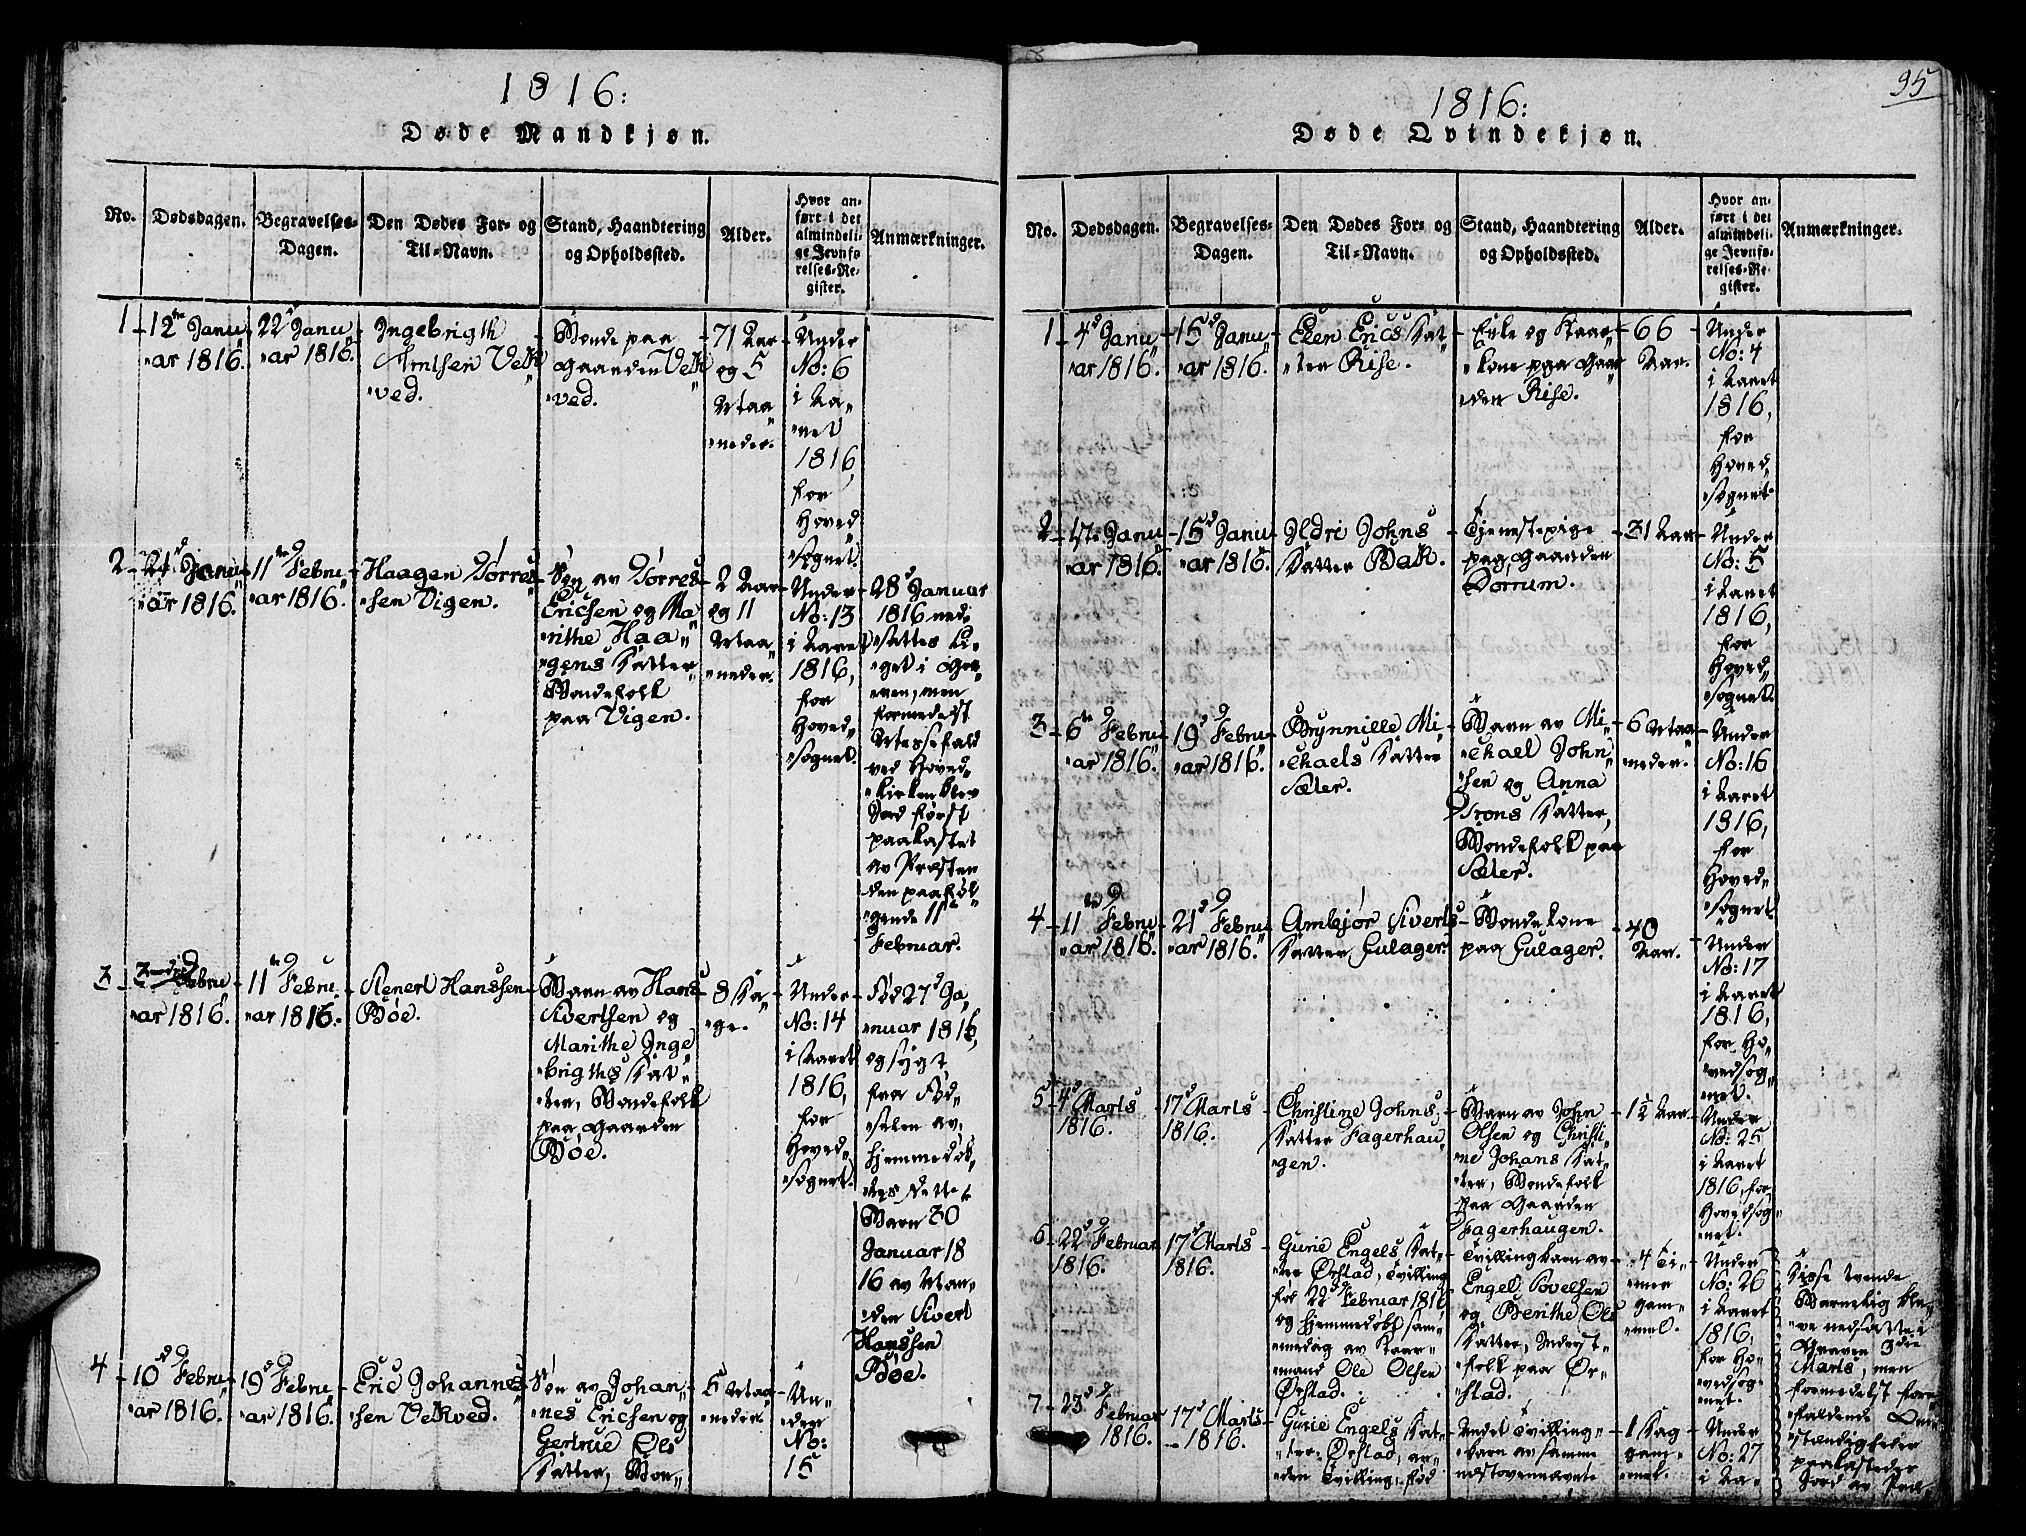 1816:
Døde Mandkjøn.
No.
Dødsdagen.
Begravelses-
Dagen.
Den Dødes For- og
Til-Navn.
Stand, Haandtering
og Opholdssted.
Alder.
Hvor an-
ført i det
almindeli-
ge Jevnfø-
relses-Re-
gister.
Anmærkninger.
1
12te Janu
ar 1816.
22d Janu
ar 1816.
Ingebrigth
Arntsen Vek
ved.
Bonde paa
Gaarden Vek
ved.
71 Aar
og 5
Maa
neder.
Under
No: 6
i Aa-
ret
1816,
for
Hoved
sognet.
2
21d Janu
ar 1816.
11te Febru
ar 1816.
Haagen Torres
sen Vigen.
Søn av Torres
Ericsen og Ma
rithe Haa
gens Datter
Bondefolk
paa Vigen.
2 Aar
og 11
Maa
neder.
Under
No: 13
i Aaret
1816,
for
Hoved
sognet.
28d Januar
1816 ned
sattes Li-
get i Gra
ven, men
formedelst
Messefald
ved Hoved
kirken blev
Jord først
paakastet
av Præsten
den paaføl
gende 11te
Februar.
3
3die Febru
ar 1816.
11te Febru
ar 1816.
Stenert Hanssen
Bøe.
Barn av Hans
Sivertsen og
Marithe Inge
brigths Dat
ter, Bondefolk
paa Gaarden
Bøe.
8 Da
ge.
Under
No: 14
i Aaret
1816,
for
Hoved
sognet.
Fød 27d Ja
nuar 1816,
og sygt
fra Fød
selen av,
hjemmedøb
tes dette
Barn 30
Januar 18
16 av Man
den Sivert
Hanssen
Bøe.
4
10d Febru
ar 1816.
19d Febru
ar 1816.
Eric Johannes
sen Vekved.
Søn av Johan
nes Ericsen og
Gertrue Ols
Datter, Bon
5 Maa
neder.
Un-
der
No:
15
95
1816:
Døde Qvindekjøn.
No.
Dødsdagen.
Begravelses-
Dagen.
Den Dødes For- og
Til-Navn.
Stand, Haandtering
og Opholdssted.
Alder.
Hvor an-
ført i det
almindeli-
ge Jevnfø-
relses-Re-
gister.
Anmærkninger.
1
4d Janu
ar 1816.
15d Janu
ar 1816.
Elen Erics Dat
ter Rise.
Enke og Kaar
kone paa Gaar
den Rise.
66
Aar.
Under
No: 4
i Aaret
1816,
for
Hoved
sognet.
2
1ste Janu
ar 1816.
15d Janu
ar 1816.
Ildri Johns
Datter Bak.
Tjenestepige
paa Gaarden
Dorrum.
31 Aar
Under
No: 5
i Aaret
1816,
for
Hoved
sognet.
3
6te Febru
ar 1816.
19d Febru
ar 1816.
Brynnille Mi
chaels Datter
Sæter.
Barn av Mi
chael John
sen og Anna
Trons Datter,
Bondefolk paa
Sæter.
6 Maa
neder.
Under
No: 16
i Aaret
1816,
for
Hoved
sognet
4
11te Febru
ar 1816.
21d Febru
ar 1816.
Ambjør Siverts
Datter Gulager.
Bondekone
paa Gulager.
40
Aar.
Under
No: 17
i Aaret
1816,
for Ho
vedsog
net.
5
4d Marts
1816.
17d Marts
1816.
Christine Johns
Datter Fagerhau
gen.
Barn av John
Olsen og Christi
ne Johans Dat
ter, Bondefolk
paa Gaarden
Fagerhaugen.
1½ Aar.
Under
No: 25
i Aaret
1816, for
Hovedsog
net.
6
22d Februar
1816.
17d Marts
1816.
Gurie Engels Dat
ter Ørstad, Tvilling
fød 22d Februar 1816
og hjemmedøbt sam
medag av Kaar
mand Ole Olsen
Ørstad.
Tvillingbarn av
Engel Povelsen
og Berithe Ols
Datter, Inderst
folk paa Ør
stad.
4 Ti
mer
gam
mel.
Under
No: 26
i Aaret
1816,
for Ho
vedsog
net.
Disse tvende
Barnelig ble
ve nedsatte i
Graven 3die
Marts, men
formedelst fore
faldende Om
stændigheder
paakastedes
Jord av Præ
7
23d Februar
1816.
17d Marts
1816.
Gurie Engels Dat
ter Ørstad, an
den Tvilling, fød
Andet Tvilling
barn av samme
næstovennævnte
1 Dag
gam
mel.
Under
No: 27
i Aa